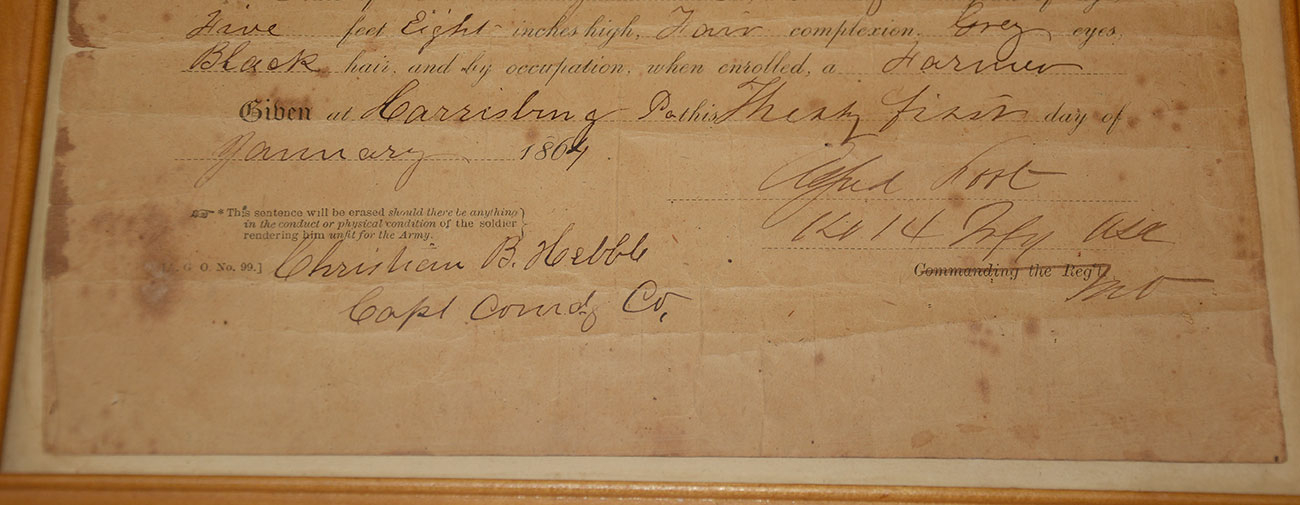 Five feet Eight inches high, Fair complexion, Grey eyes,
Black hair, and by occupation, when enrolled, a Farmer
Given at Harrisburg Pa this Thirty first day of
January 1864
Alfred
* This sentence will be erased should there be anything
in the conduct or physical condition of the soldier
rendering him unfit for the Army.
14 Infy USA
[A. G. O. No. 99.] Christian B. Hebble
Commanding the Reg't
Capt Comdg Co.